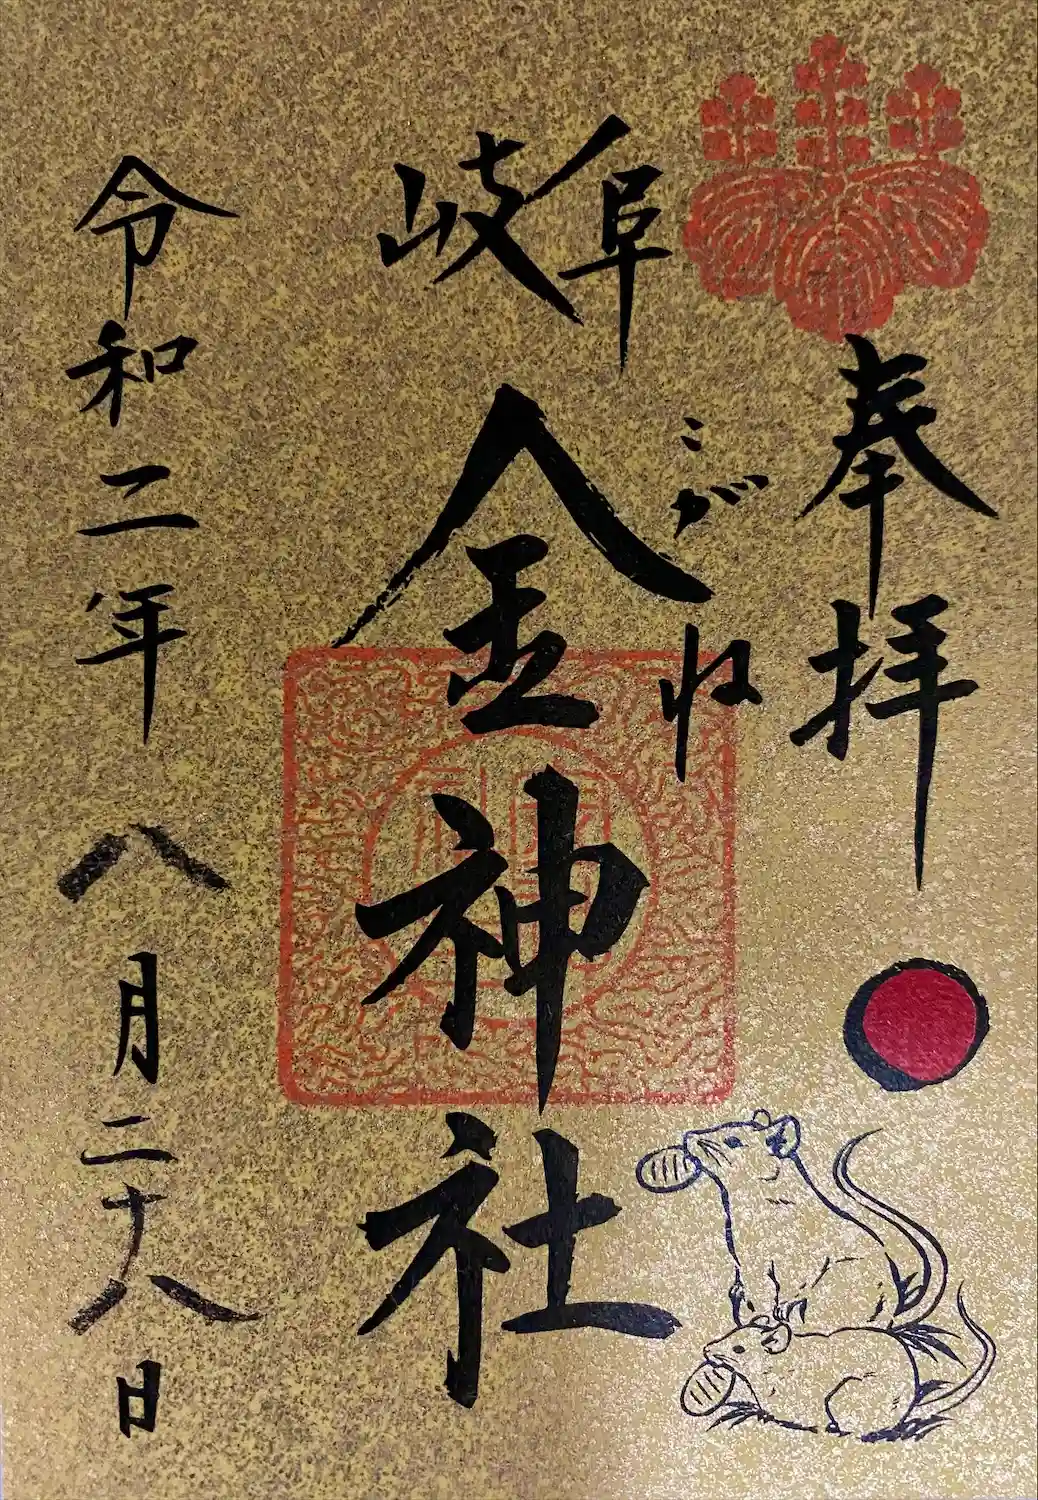 奉拝
岐阜
こがね
金神社
令和二年八月二十八日